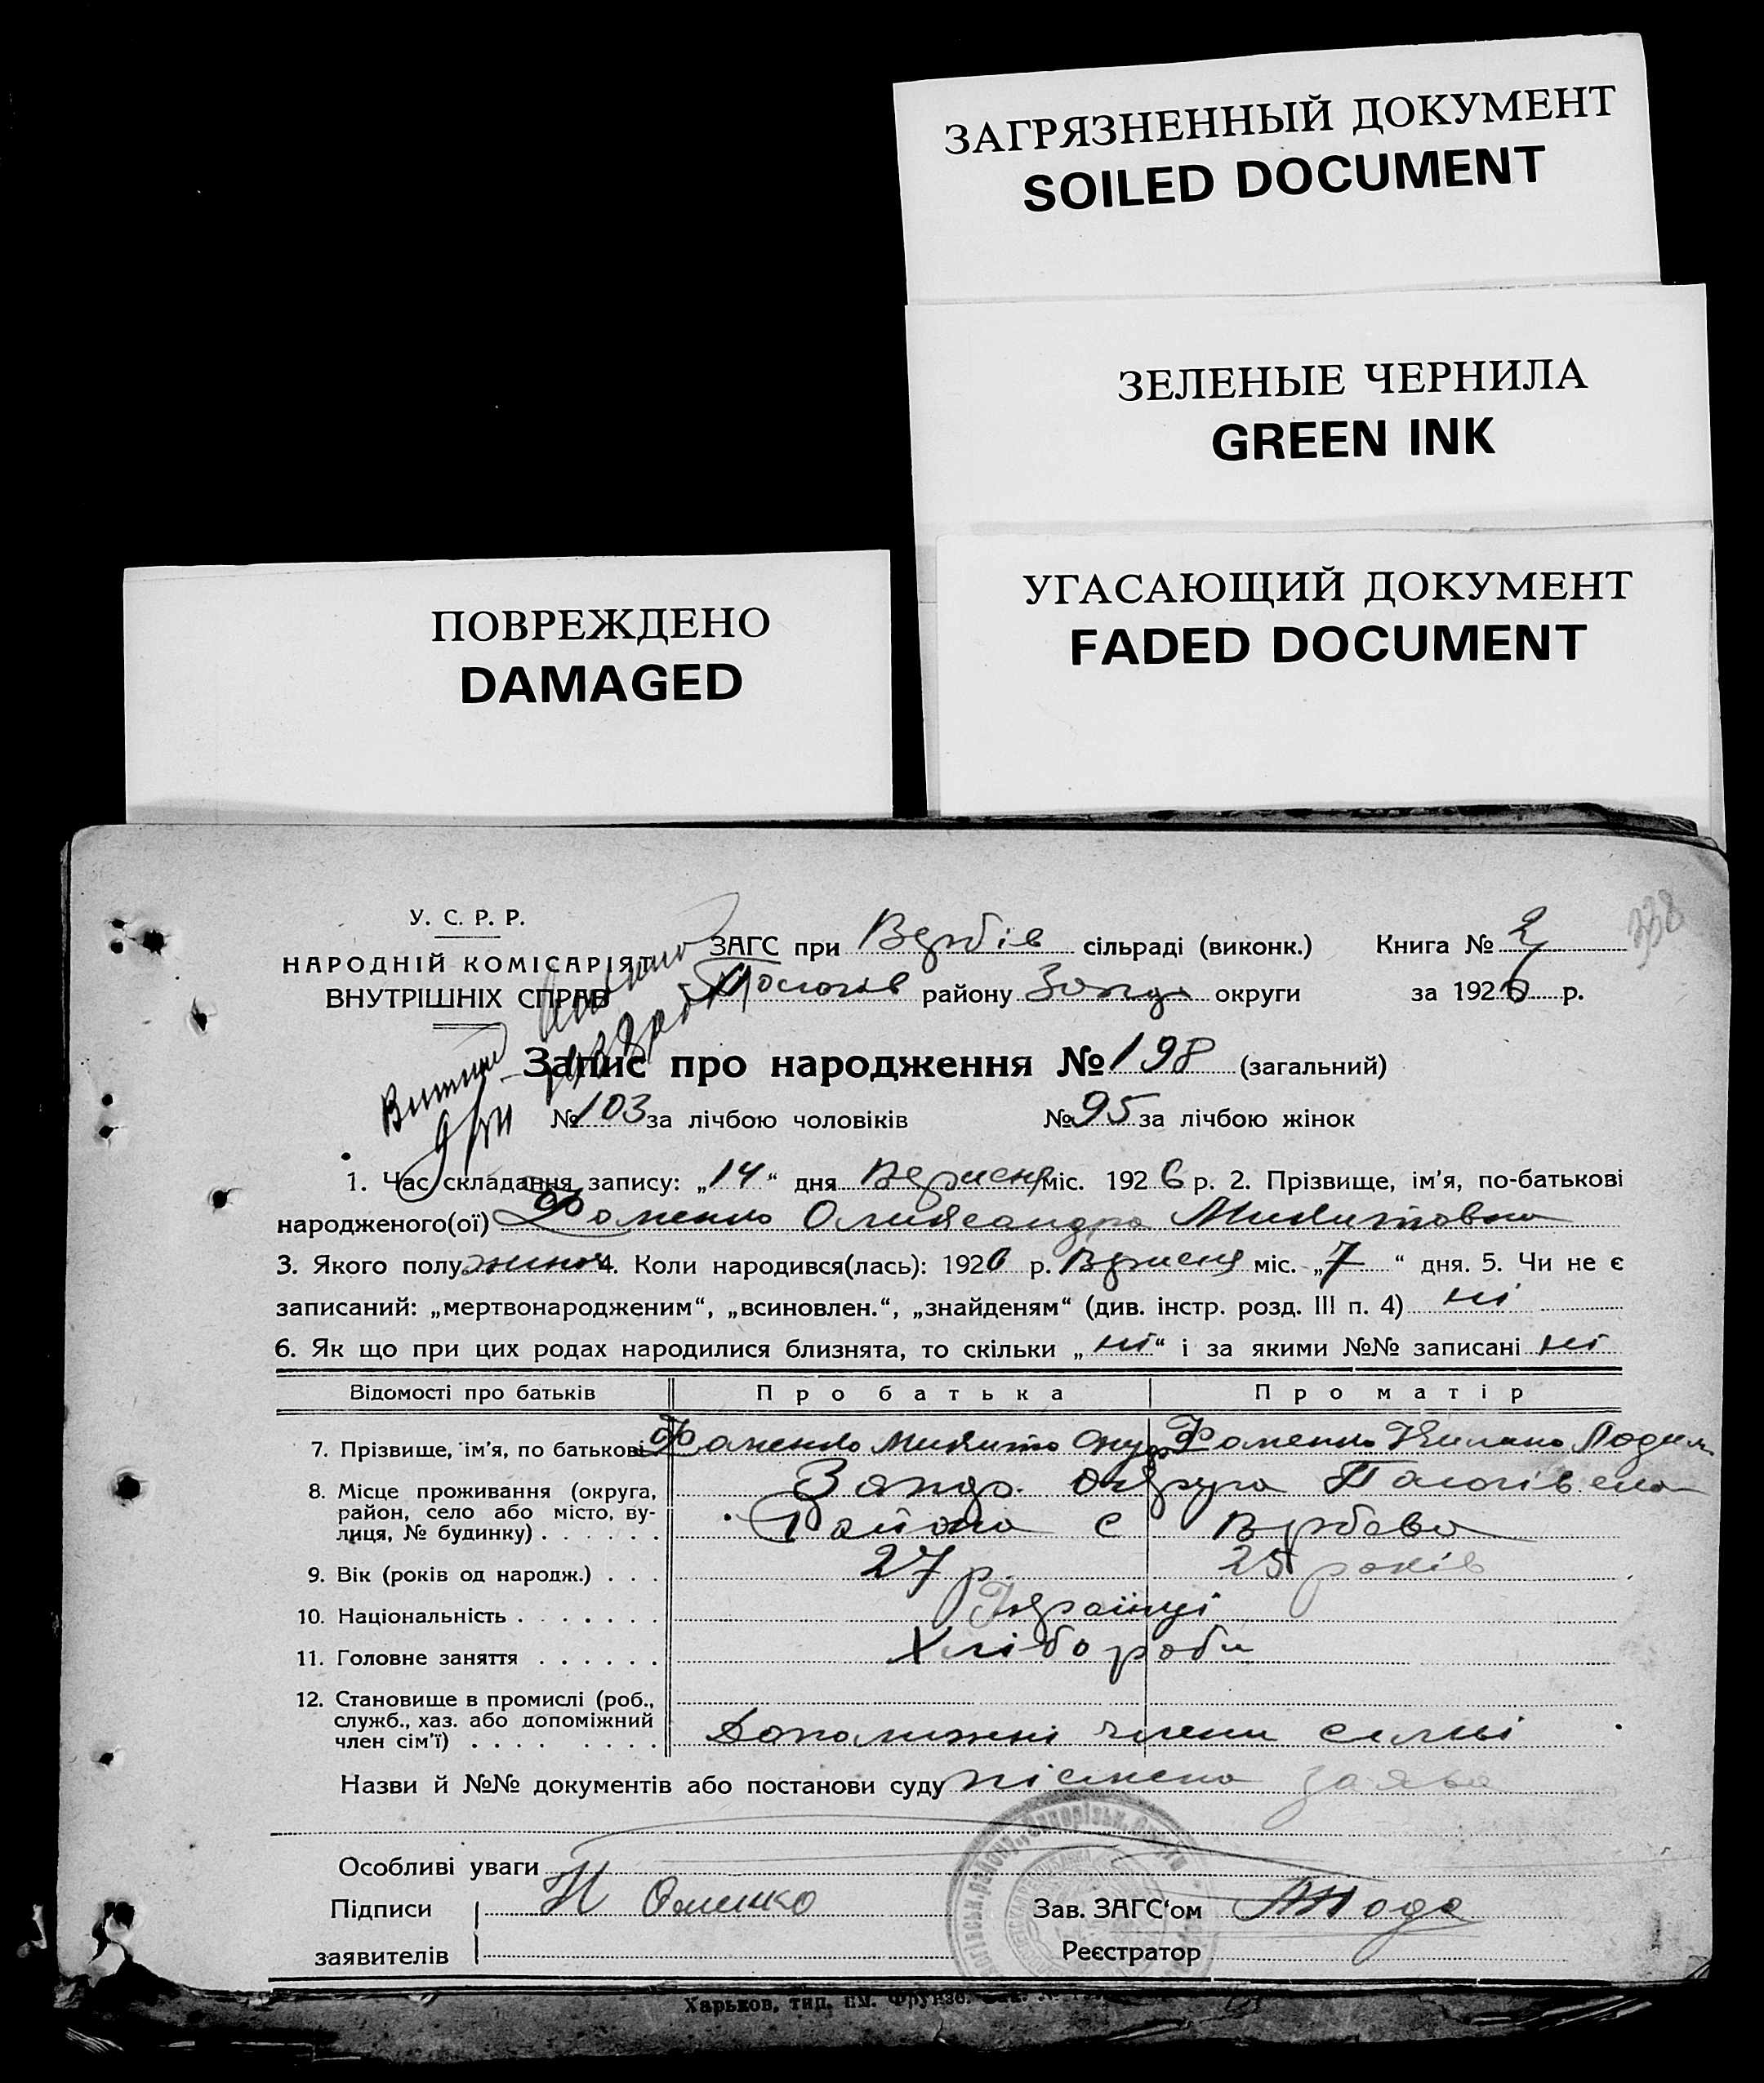 ЗАГРЯЗНЕННЫЙ ДОКУМЕНТ
SOILED DOCUMENT
ЗЕЛЕНЫЕ ЧЕРНИЛА
GREEN INK
УГАСАЮЩИЙ ДОКУМЕНТ
FADED DOCUMENT
ПОВРЕЖДЕНО
DAMAGED
338
У. С. Р. Р.
НАРОДНІЙ КОМІСАРІЯТ
ВНУТРІШНІХ СПРАВ
ЗАГС при Вербів сільраді (виконк.) Книга № 2
району округи за 1926 р.
Запис про народження № 198 (загальний)
№ 103 за лічбою чоловіків № 95 за лічбою жінок
1. Час складання запису: „14“ дня Вересня міс. 1926 р. 2. Прізвище, ім'я, по-батькові
народженого(ої) Фоменко Олександра Микитовна
3. Якого полу жиноч 4. Коли народився(лась): 1926 р. Вересня міс. „7“ дня. 5. Чи не є
записаний: „мертвонародженим“, „всиновлен.“, „знайденям“ (див. інстр. розд. III п. 4) ні
6. Як що при цих родах народилися близнята, то скільки „ні“ і за якими №№ записані ні
Відомості про батьків Про батька Про матір
7. Прізвище, ім'я, по батькові Фоменко Микита Фоменко
8. Місце проживання (округа, район, село або місто, вулиця, № будинку) . . . . . . Запор. округа
Района с Вербова
9. Вік (років од народж.) . . . 27 р. 25 років
10. Національність . . . . . . . Українці
11. Головне заняття . . . . . . Хлібороби
12. Становище в промислі (роб., служб., хаз. або допоміжний член сім'ї) . . . . . . . . Допоміжні члени сем'ї
Назви й №№ документів або постанови суду пісмена заява
Особливі уваги
Підписи заявителів Зав. ЗАГС'ом
Реєстратор
Харьков, тип. им. Фрунзе.